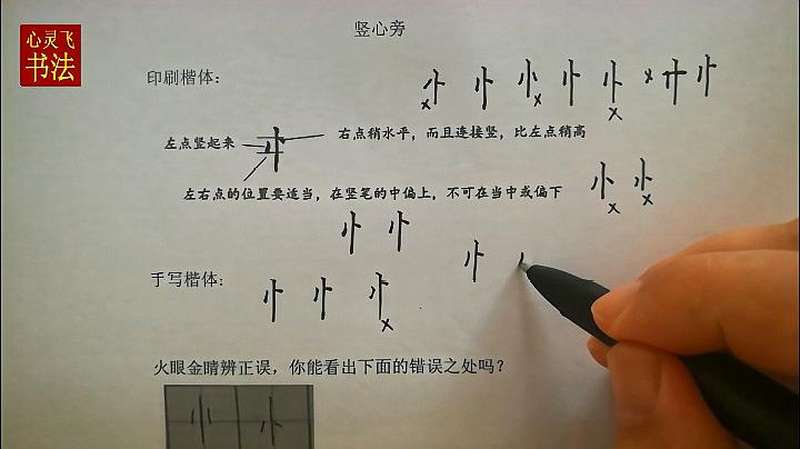 心灵飞
书法
竖心旁
印刷楷体：
左点竖起来
右点稍水平，而且连接竖，比左点稍高
左右点的位置要适当，在竖笔的中偏上，不可在当中或偏下
手写楷体：
火眼金睛辨正误，你能看出下面的错误之处吗？